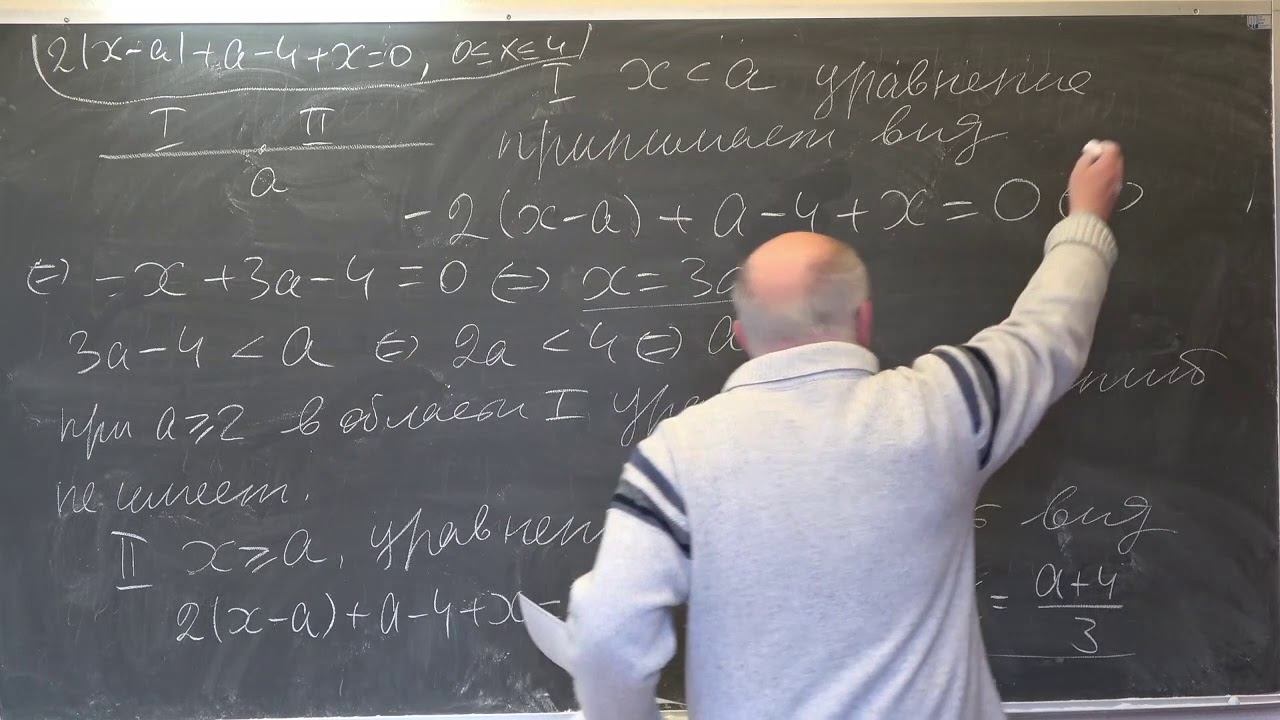 2|x-a|+a-4+x=0, 0≤x≤4
I II
a
I x<a уравнение
принимает вид
-2(x-a)+a-4+x=0
⇔ -x+3a-4=0 ⇔ x=3a
3a-4<a ⇔ 2a<4 ⇔ a
при a≥2 в области I
не имеет.
II x≥a,
вид
2(x-a)+a-4+x
= a+4/3